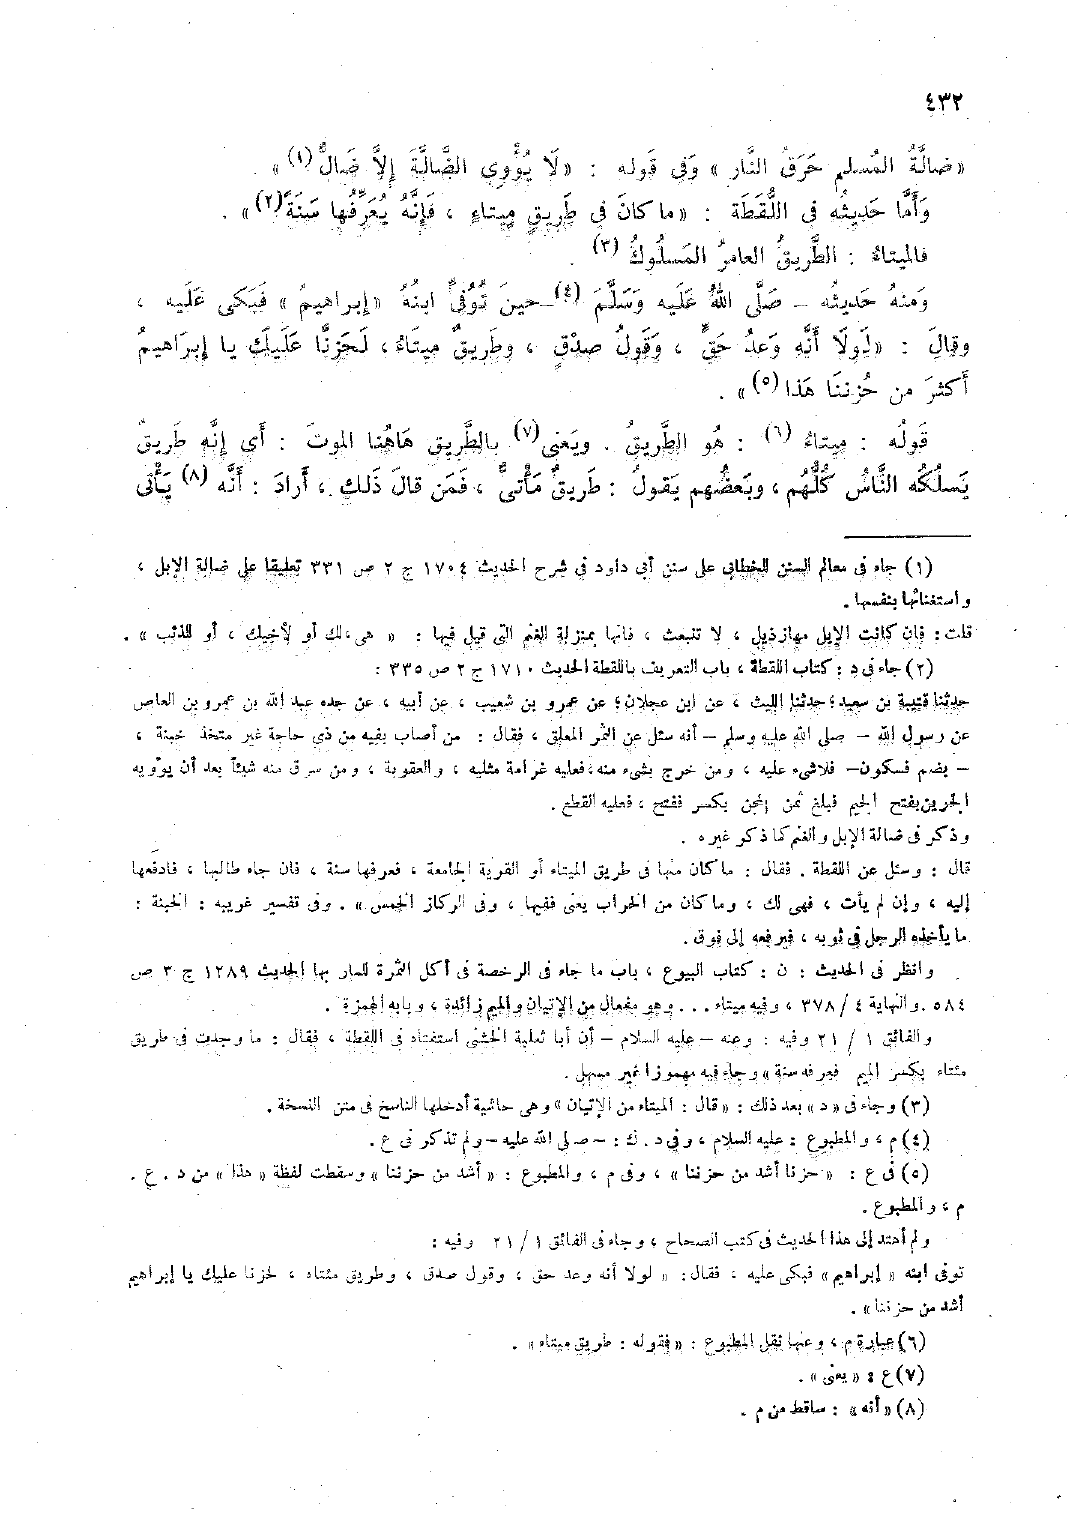 ٤٣٢
«ضالَّةُ المُسلمِ حَرَقُ النَّار » وَفِي قَولِه : «لَا يُؤْوِي الضَّالَّةَ إِلاَّ ضَالٌّ (١) » .
وَأَمَّا حَدِيثُه فى اللُّقَطَة : «ما كانَ فى طَرِيقٍ مِيتاءٍ ، فَإِنَّهُ يُعَرِّفُها سَنَةً (٢) » .
فالمِيتاءُ : الطَّريقُ العامرُ المَسلُوكُ (٣) .
وَمنهُ حَديثُه – صَلَّى اللهُ عَلَيه وَسَلَّمَ (٤) – حينَ تُوُفِّىَ ابنُهُ «إبراهيمُ » فَبَكى عَلَيه ،
وقالَ : «لَولَا أَنَّهِ وَعدُ حَقٍّ ، وَقَولُ صدْقٍ ، وطَرِيقٌ مِيتاءٌ ، لَحَزِنَّا عَلَيكَ يا إبرَاهيمُ
أَكثَرَ من حُزننَا هَذا (٥) » .
قَولُه : مِيتاءٌ (٦) : هُو الطَّرِيقُ . ويَعنى (٧) بالطَّرِيقِ هَاهُنا الموتَ : أَى إنَّه طَرِيقٌ
يَسلُكُه النَّاسُ كُلُّهُم ، وبَعضُهم يَقولُ : طَريقٌ مَأْتىٌّ ، فَمَن قالَ ذَلكَ ، أَرادَ : أَنَّه (٨) يَأْتى
(١) جاء فى معالم السنن للخطابى على سنن أبى داود فى شرح الحديث ١٧٠٤ ج ٢ ص ٣٣١ تعليقا على ضالة الإبل ،
واستغنائها بنفسها .
قلت : فإن كانت الإبل مهازذيل ، لا تنبعث ، فانها بمنزلة الغنم التى قيل فيها : « هى لك أو لأخيك ، أو للذئب » .
(٢) جاء فى د : كتاب اللقطة ، باب التعريف باللقطة الحديث ١٧١٠ ج ٢ ص ٣٣٥ :
حدثنا قتيبة بن سعيد ؛ حدثنا الليث ، عن ابن عجلان ؛ عن عمرو بن شعيب ، عن أبيه ، عن جده عبد الله بن عمرو بن العاص
عن رسول الله – صلى الله عليه وسلم – أنه سئل عن الثمر المعلق ، فقال : من أصاب بفيه من ذي حاجة غير متخذ خبنة ،
– بضم فسكون – فلاشىء عليه ، ومن خرج بشىء منه ، فعليه غرامة مثليه ، والعقوبة ، ومن سرق منه شيئاً بعد أن يؤويه
الجرين بفتح الجيم فبلغ ثمن المجن بكسر ففتح ، فعليه القطع .
وذكر فى ضالة الإبل والغنم كما ذكر غيره .
قال : وسئل عن اللقطة . فقال : ما كان منها فى طريق الميتاء أو القرية الجامعة ، فعرفها سنة ، فان جاء طالبها ، فادفعها
إليه ، وإن لم يأت ، فهى لك ، وما كان من الخراب يعنى ففيها ، وفى الركاز الخمس » . وفى تفسير غريبه : الخبنة :
ما يأخذه الرجل فى ثوبه ، فيرفعه إلى فوق .
وانظر فى الحديث : ن : كتاب البيوع ، باب ما جاء فى الرخصة فى أكل الثمرة للمار بها الحديث ١٢٨٩ ج ٣ ص
٥٨٤ . والنهاية ٤ / ٣٧٨ ، وفيه ميتاء . . . وهو مفعال من الإتيان والميم زائدة ، وبابه الهمزة .
والفائق ١ / ٢١ وفيه : وعنه – عليه السلام – أن أبا ثعلبة الخشنى استفتاه فى اللقطة ، فقال : ما وجدت فى طريق
مئتاء بكسر الميم فعرفه سنة » وجاء فيه مهموزا غير مسهل .
(٣) وجاء فى « د » بعد ذلك : « قال : الميتاء من الإتيان » وهى حاشية أدخلها الناسخ فى متن النسخة .
(٤) م ، والمطبوع : عليه السلام ، وفى د . ك : – صلى الله عليه – ولم تذكر فى ع .
(٥) فى ع : « حزنا أشد من حزننا » ، وفى م ، والمطبوع : « أشد من حزننا » وسقطت لفظة « هذا » من د . ع .
م ، والمطبوع .
ولم أهتد إلى هذا الحديث فى كتب الصحاح ، وجاء فى الفائق ١ / ٢١ وفيه :
توفى ابنه « إبراهيم » فبكى عليه ، فقال : « لولا أنه وعد حق ، وقول صدق ، وطريق مئتاء ، لحزنا عليك يا إبراهيم
أشد من حزننا » .
(٦) عبارة م ، وعنها نقل المطبوع : « فقوله : طريق ميتاء » .
(٧) ع : « يعنى » .
(٨) « أنه » : ساقط من م .